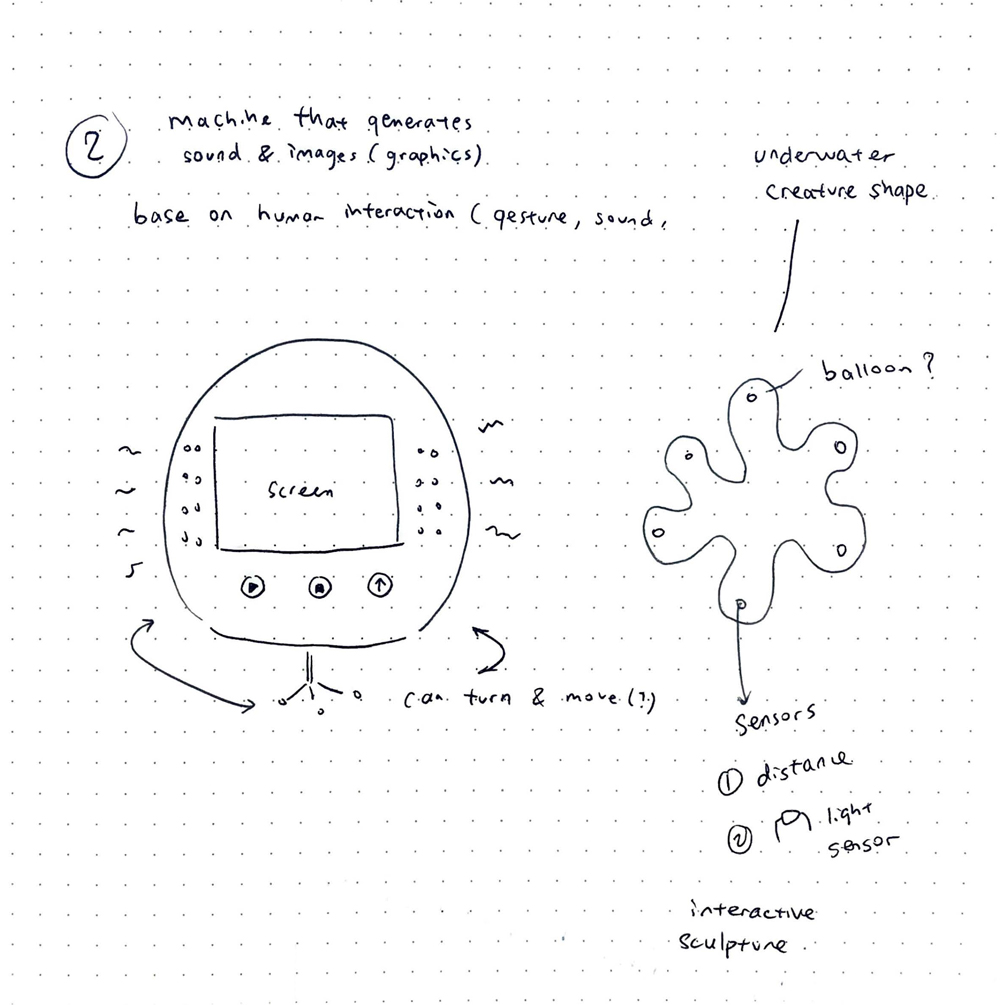 2
machine that generates
sound & images (graphics)
base on human interaction (gesture, sound,
underwater
creature shape
balloon?
screen
can turn & move (?)
sensors
1 distance
2 light
sensor
interactive
sculpture